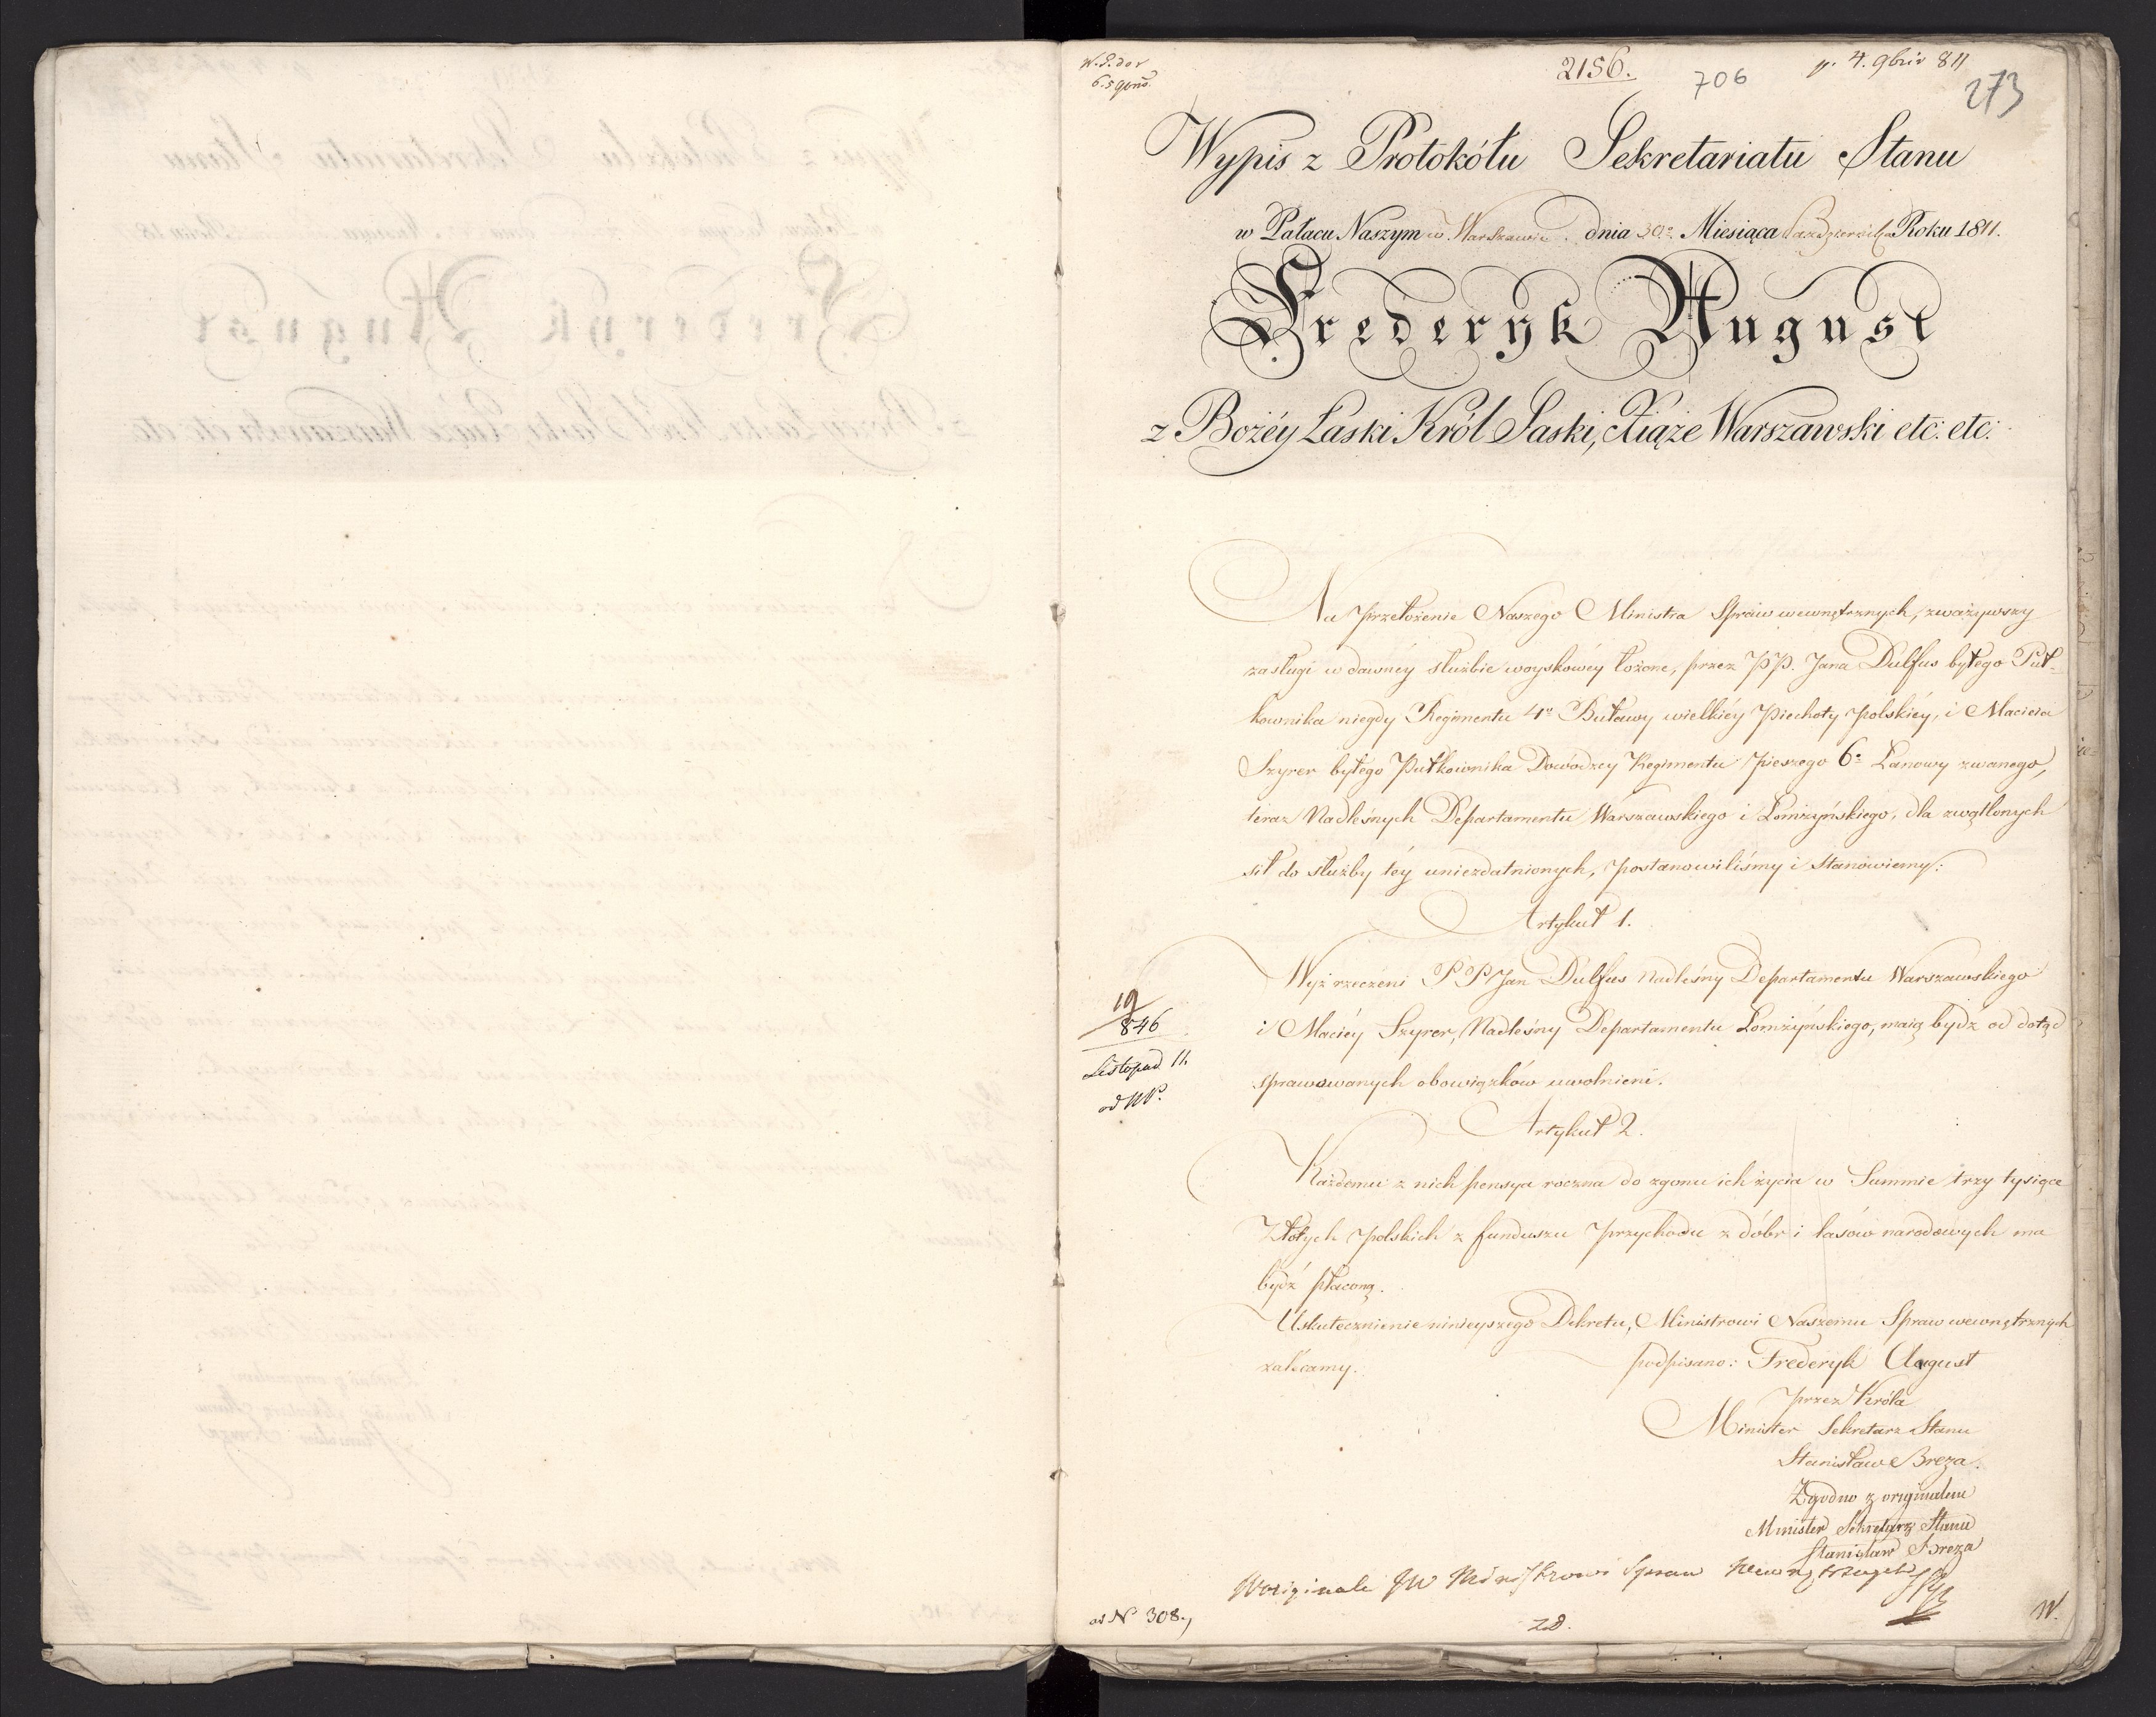 2156.
706
273
Wypis z Protokółu Sekretariatu Stanu
w Pałacu Naszym w Warszawie dnia 30º Miesiąca Października Roku 1811.
Frederyk August
z Bożéy Łaski Król Saski, Xiąże Warszawski etc: etc:
Na przełożenie Naszego Ministra Spraw wewnętrznych, zważywszy
zasługi w dawnéy służbie woyskowéy łożone, przez PP. Jana Dulfus byłego Puł-
kownika niegdy Regimentu 4º Buławy wielkiéy Piechoty polskiéy, i Macieia
Szyrer byłego Pułkownika Dowódzcy Regimentu pieszego 6º Łanowy zwanego,
teraz Nadleśnych Departamentu Warszawskiego i Łomżyńskiego, dla zwątlonych
sił do służby téy uniezdatnionych, postanowiliśmy i Stanowiemy:
Artykuł 1.
Wyż rzeczeni PP Jan Dulfus Nadleśny Departamentu Warszawskiego
i Maciéy Szyrer, Nadleśny Departamentu Łomżyńskiego, maią bydź od dotąd
sprawowanych obowiązków uwolnieni.
19
846
Listopad 11
Artykuł 2.
Każdemu z nich pensya roczna do zgonu ich życia w Summie trzy tysiące
Złotych polskich z funduszu przychodu z dóbr i lasów narodowych ma
bydź płaconą.
Uskutecznienie ninieyszego Dekretu, Ministrowi Naszemu Spraw wewnętrznych
zalecamy.
podpisano: Frederyk August
przez Króla
Minister Sekretarz Stanu
Stanisław Breza.
Zgodno z originałem
Minister Sekretarz Stanu
Stanisław Breza
W originale JW Ministrowi Spraw Wewnętrznych
ad Nº 308.